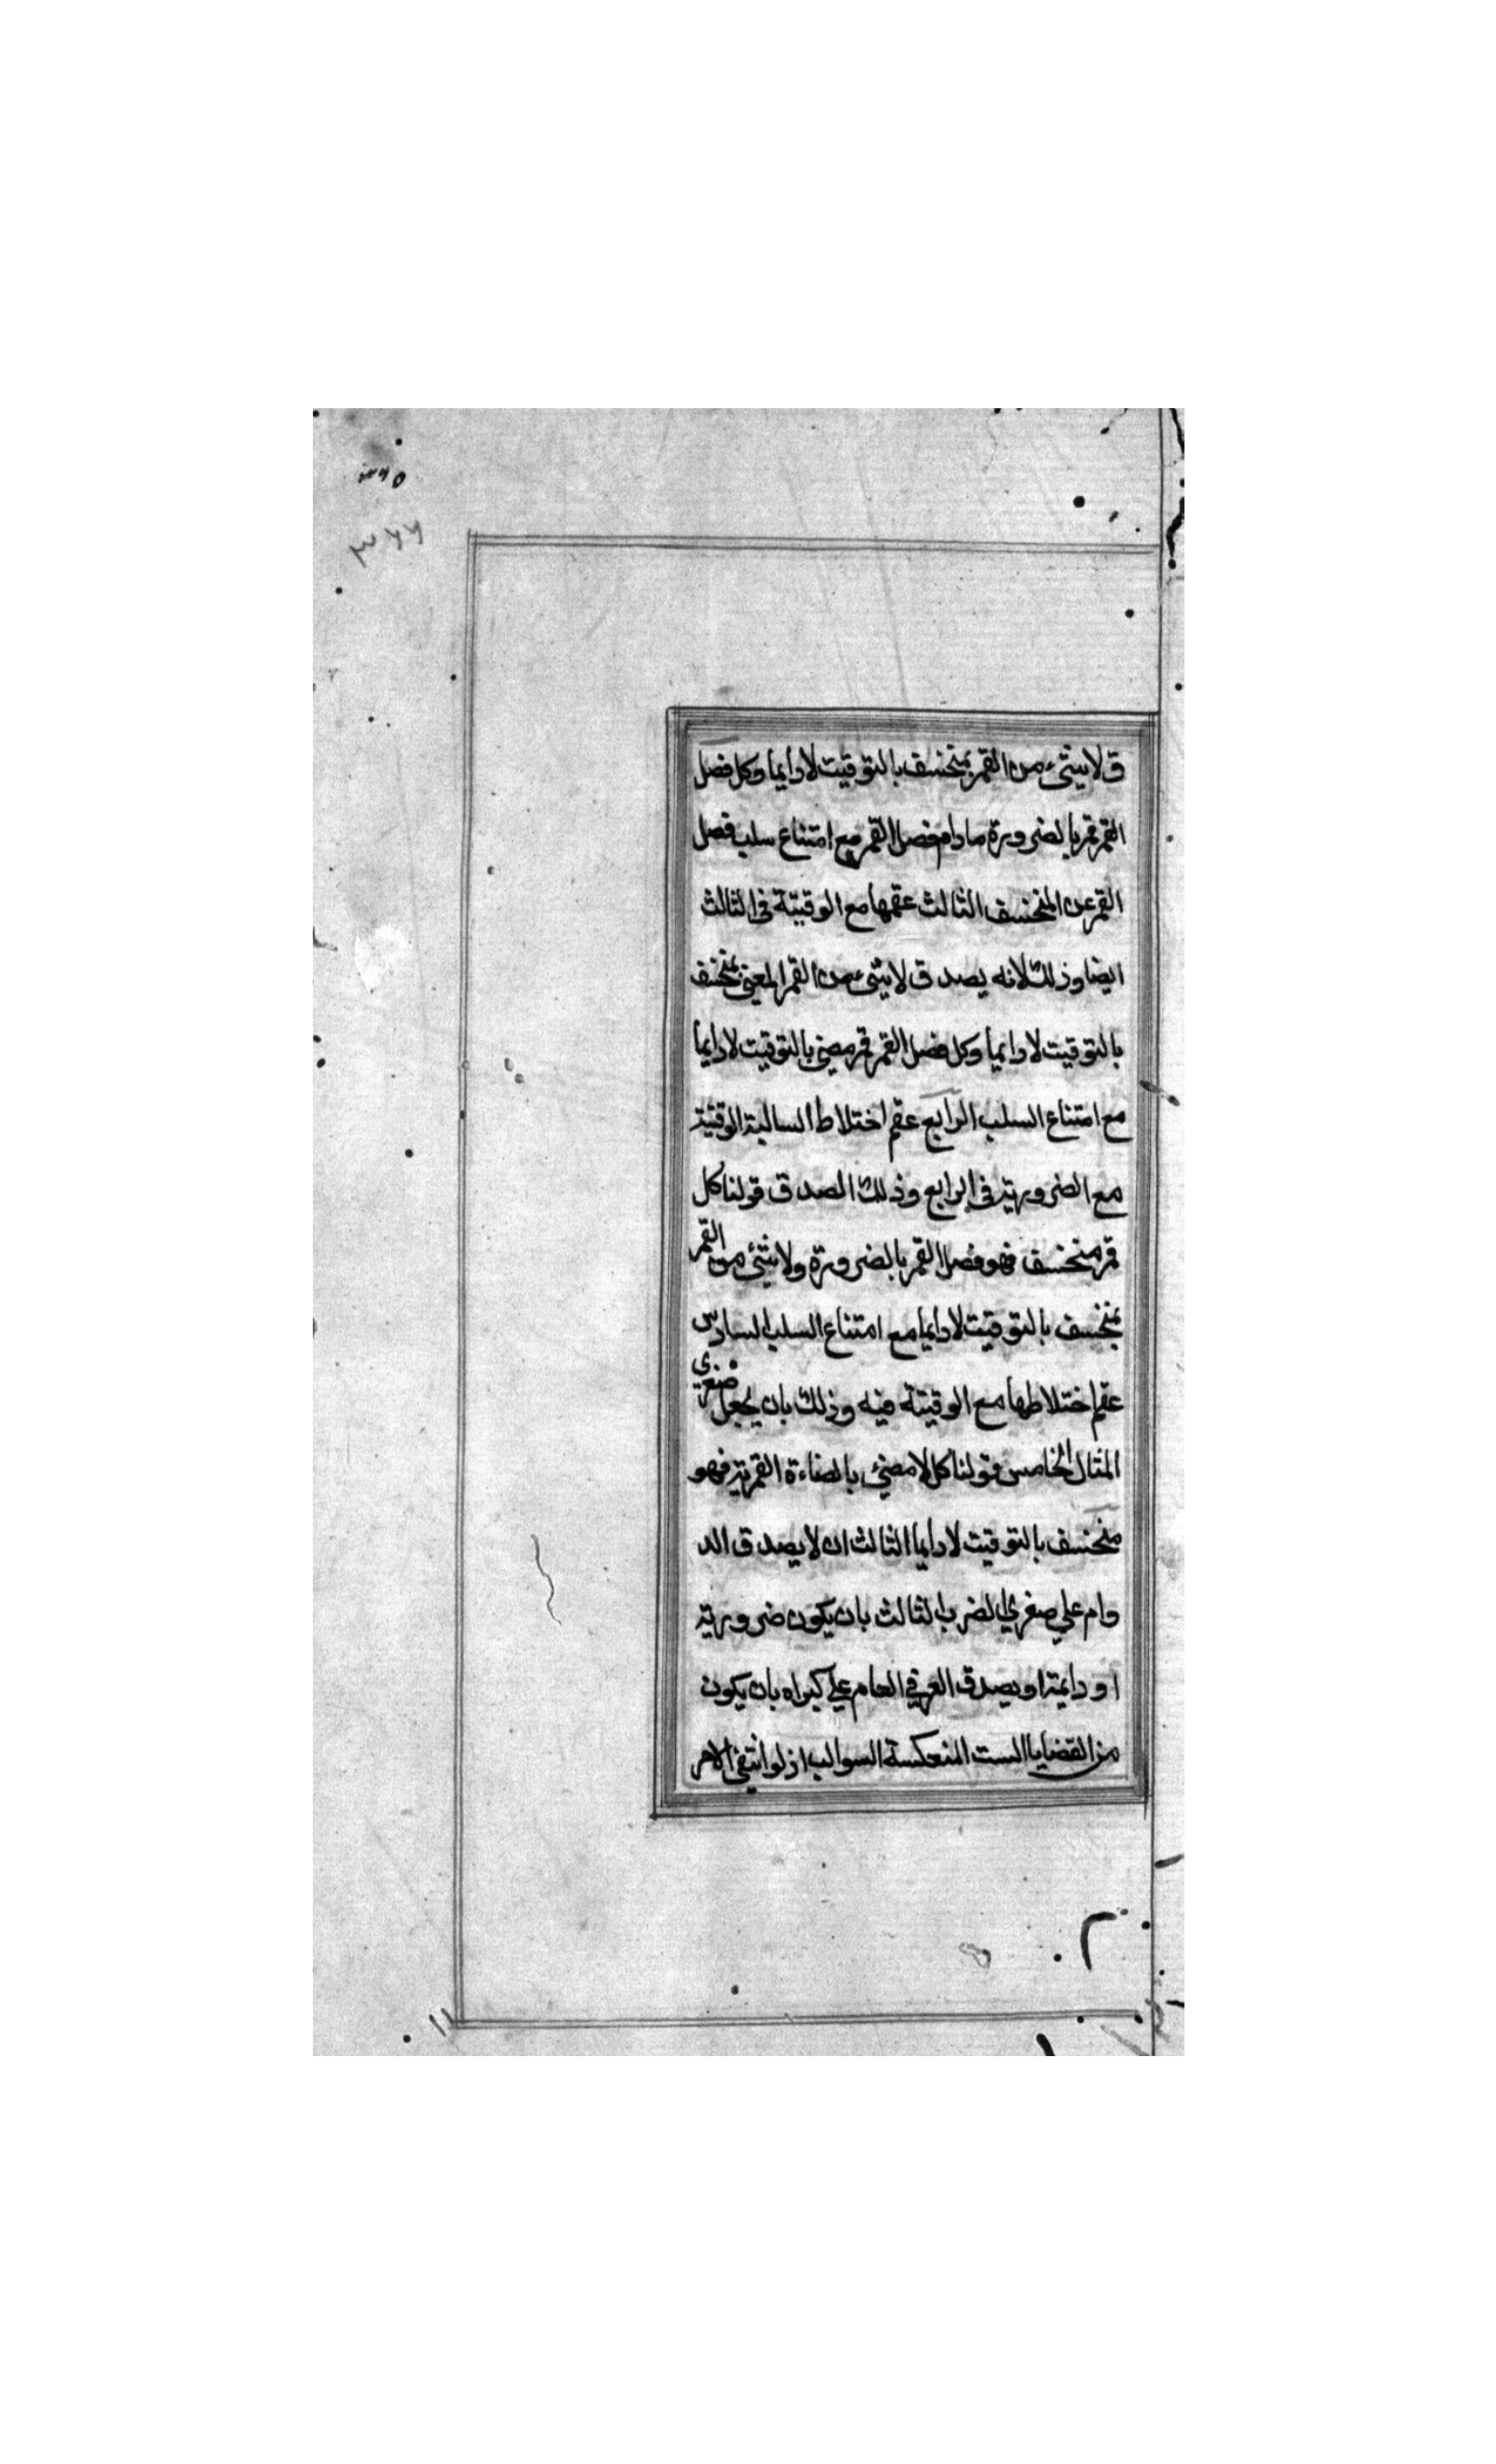 ٣٦٥
٣٦٦
ق لا شئ من القمر بمنخسف بالتوقيت لا دايما وكل فصل
القمر قمر بالضرورة مادام فصل القمر مع امتناع سلب فصل
القمر عن المنخسف الثالث عقمها مع الوقيتة في الثالث
ايضا وذلك لانه يصدق لا شئ من القمر المعنى بمنخسف
بالتوقيت لا دايما وكل فصل القمر قمر مضئ بالتوقيت لا دايما
مع امتناع السلب الرابع عقم اختلاط السالبة الوقتية
مع الضرورية في الرابع وذلك الصدق قولنا كل
قمر منخسف فهو فصل القمر بالضرورة ولا شئ من القمر
بمنخسف بالتوقيت لا دايما مع امتناع السلب السادس
عقم اختلاطها مع الوقيتة فيه وذلك بان يجعل صغرى
المثال الخامس قولنا كل لا مضئ بالضاءة القمرية فهو
منخسف بالتوقيت لا دايما الثالث ان لا يصدق الد
وام علي صغري الضرب الثالث بان يكون ضرورية
او دايمة او يصدق العرفي العام علي كبراه بان يكون
من القضايا الست المنعكسة السوالب اذ لو انتفى الامر